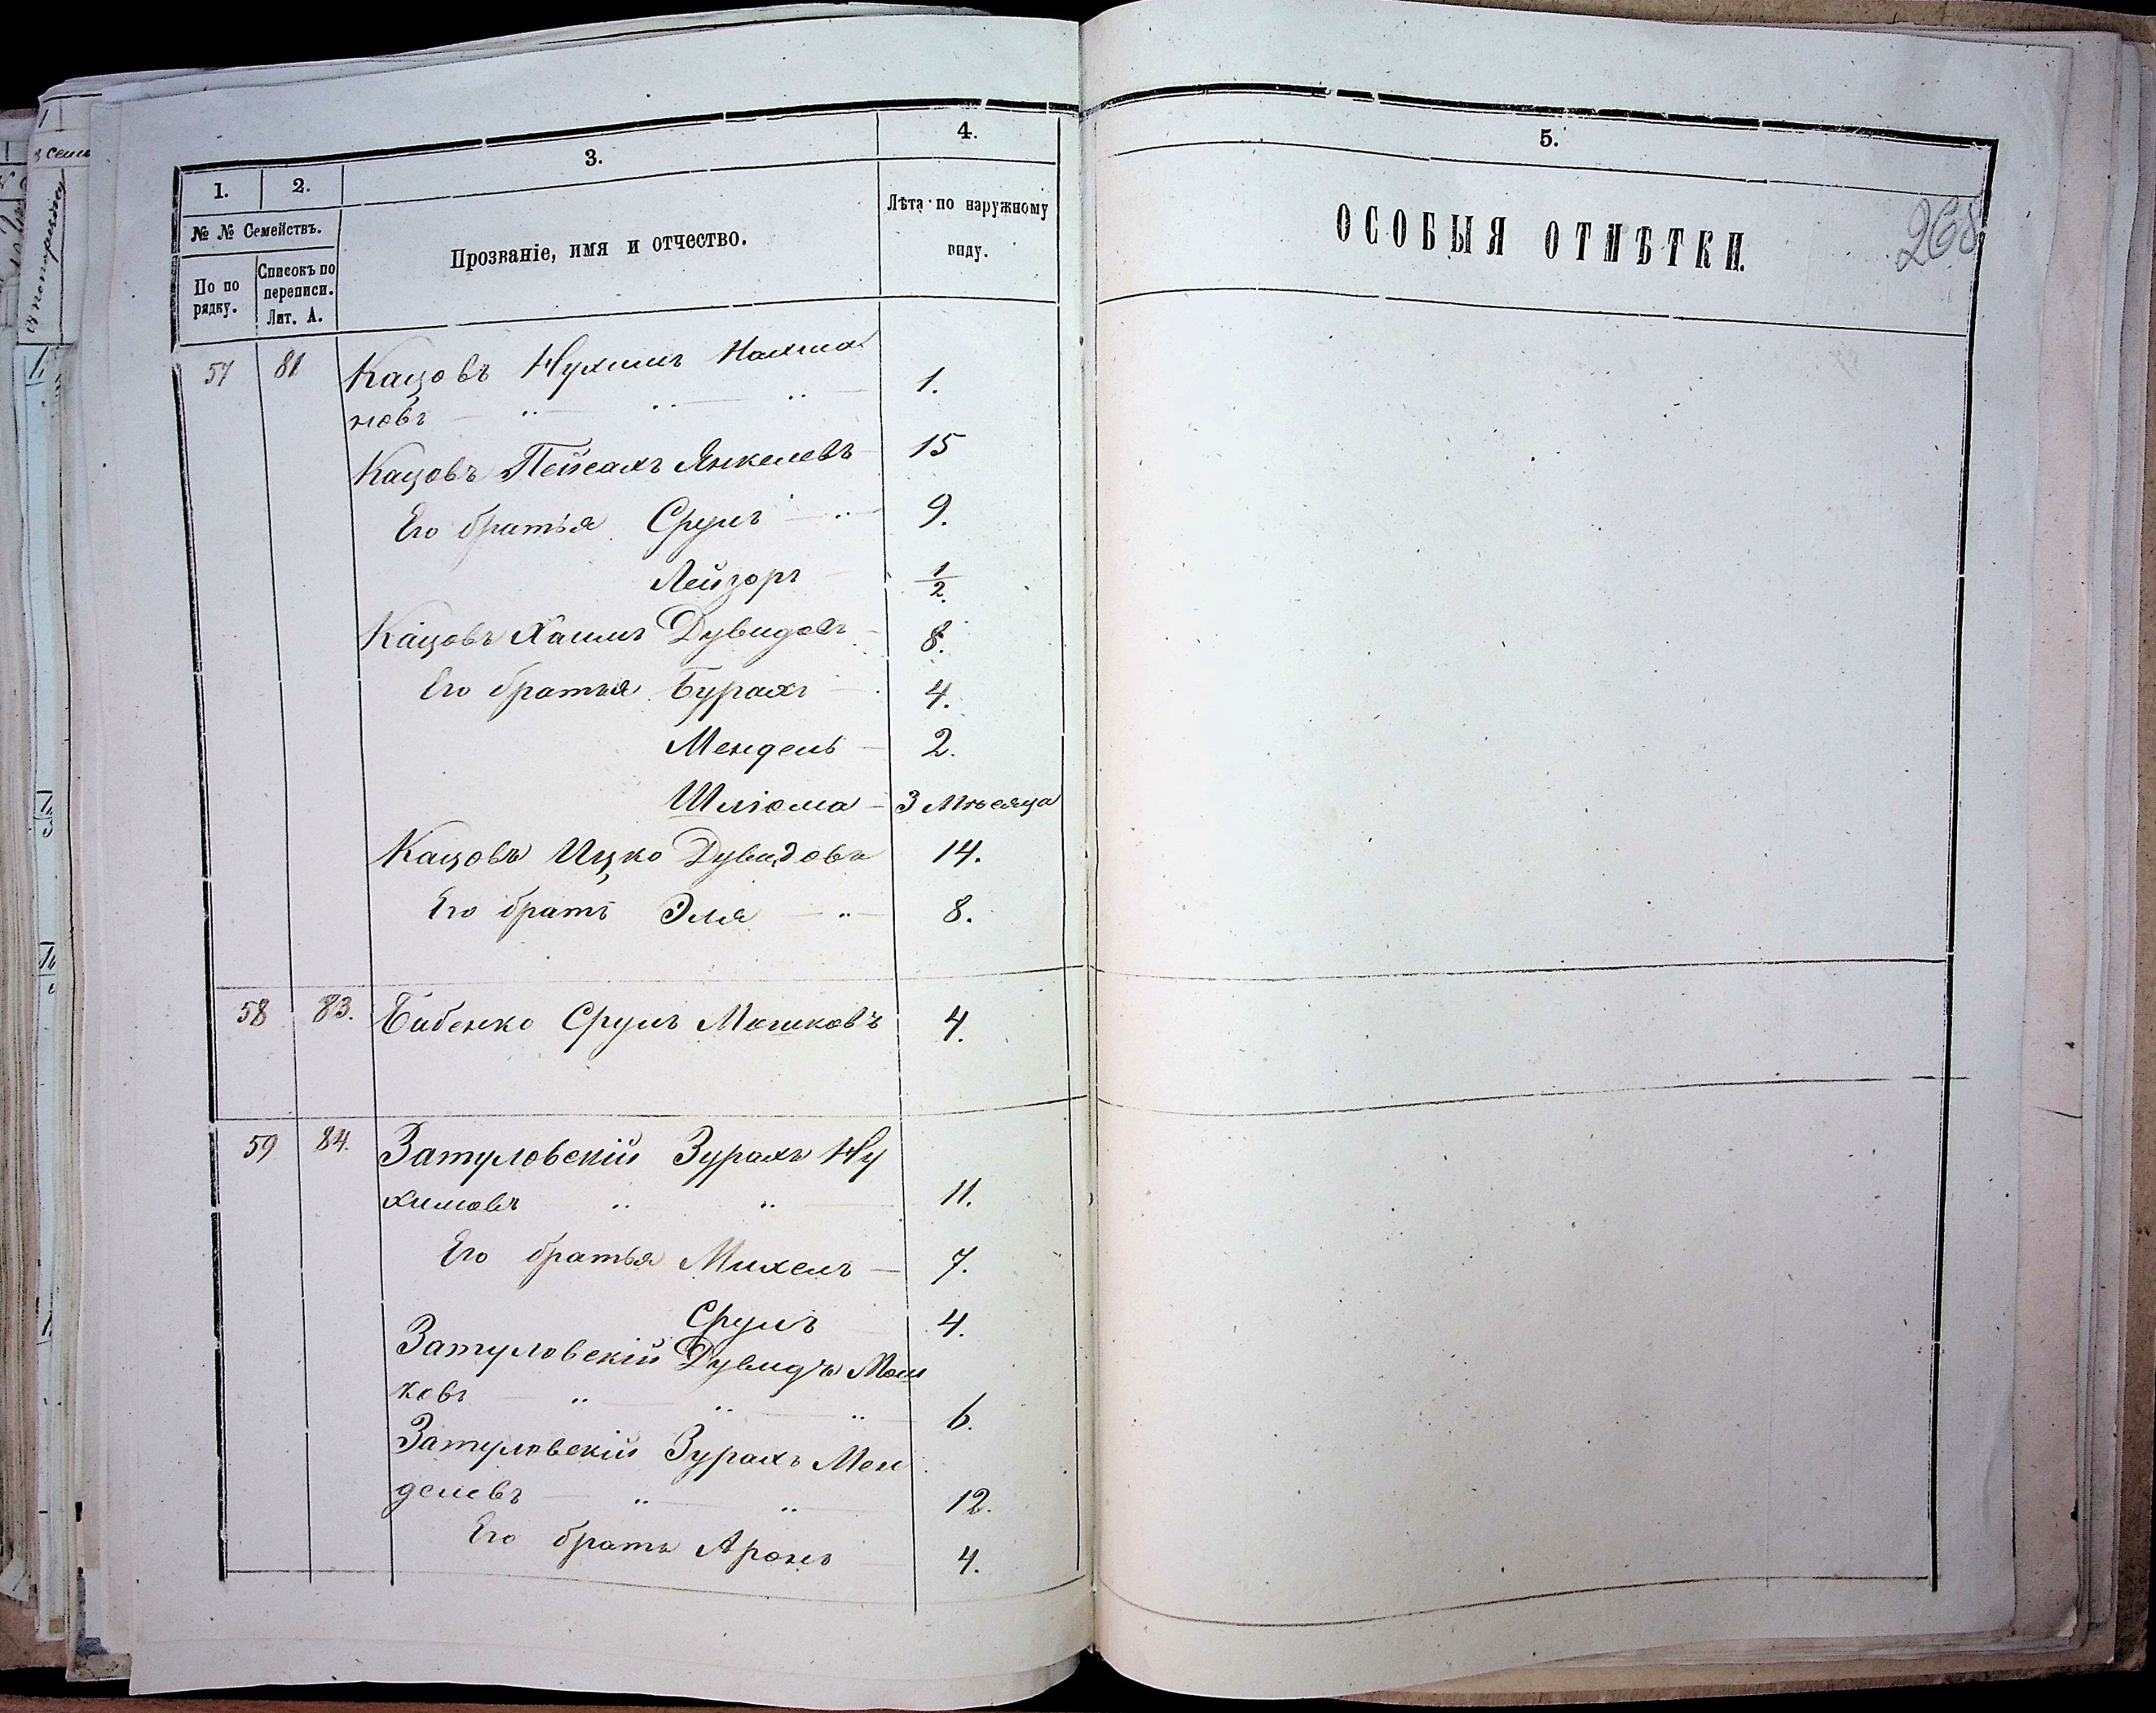 1.
2.
3.
4.
5.
№ № Семействъ.
По по
рядку.
Списокъ по
переписи.
Лит. А.
Прозваніе, имя и отчество.
Лѣта по наружному
виду.
ОСОБЫЯ ОТМѢТКИ.
268
57 81 Кацовъ Нухимъ Нахма
новъ — " — " — " — 1.
Кацовъ Пейсахъ Янкелевъ 15
Его братья Сруль — " — 9.
Лейзоръ — 1/2.
Кацовъ Хаимъ Дувидовъ — 8.
Его братья Бурахъ — 4.
Мендель — 2.
Шліома — 3 Мѣсяца
Кацовъ Ицко Дувидовъ 14.
Его братъ Эля — " — 8.
58 83. Бабенко Сруль Мошковъ 4.
59 84. Затуловскій Зурахъ Ну
химовъ — " — " — 11.
Его братья Михель — 7.
Сруль 4.
Затуловскій Дувидъ Мош
ковъ — " — " — " — 6.
Затуловскій Зурахъ Мен
делевъ — " — " — 12.
Его братъ Аронъ — 4.